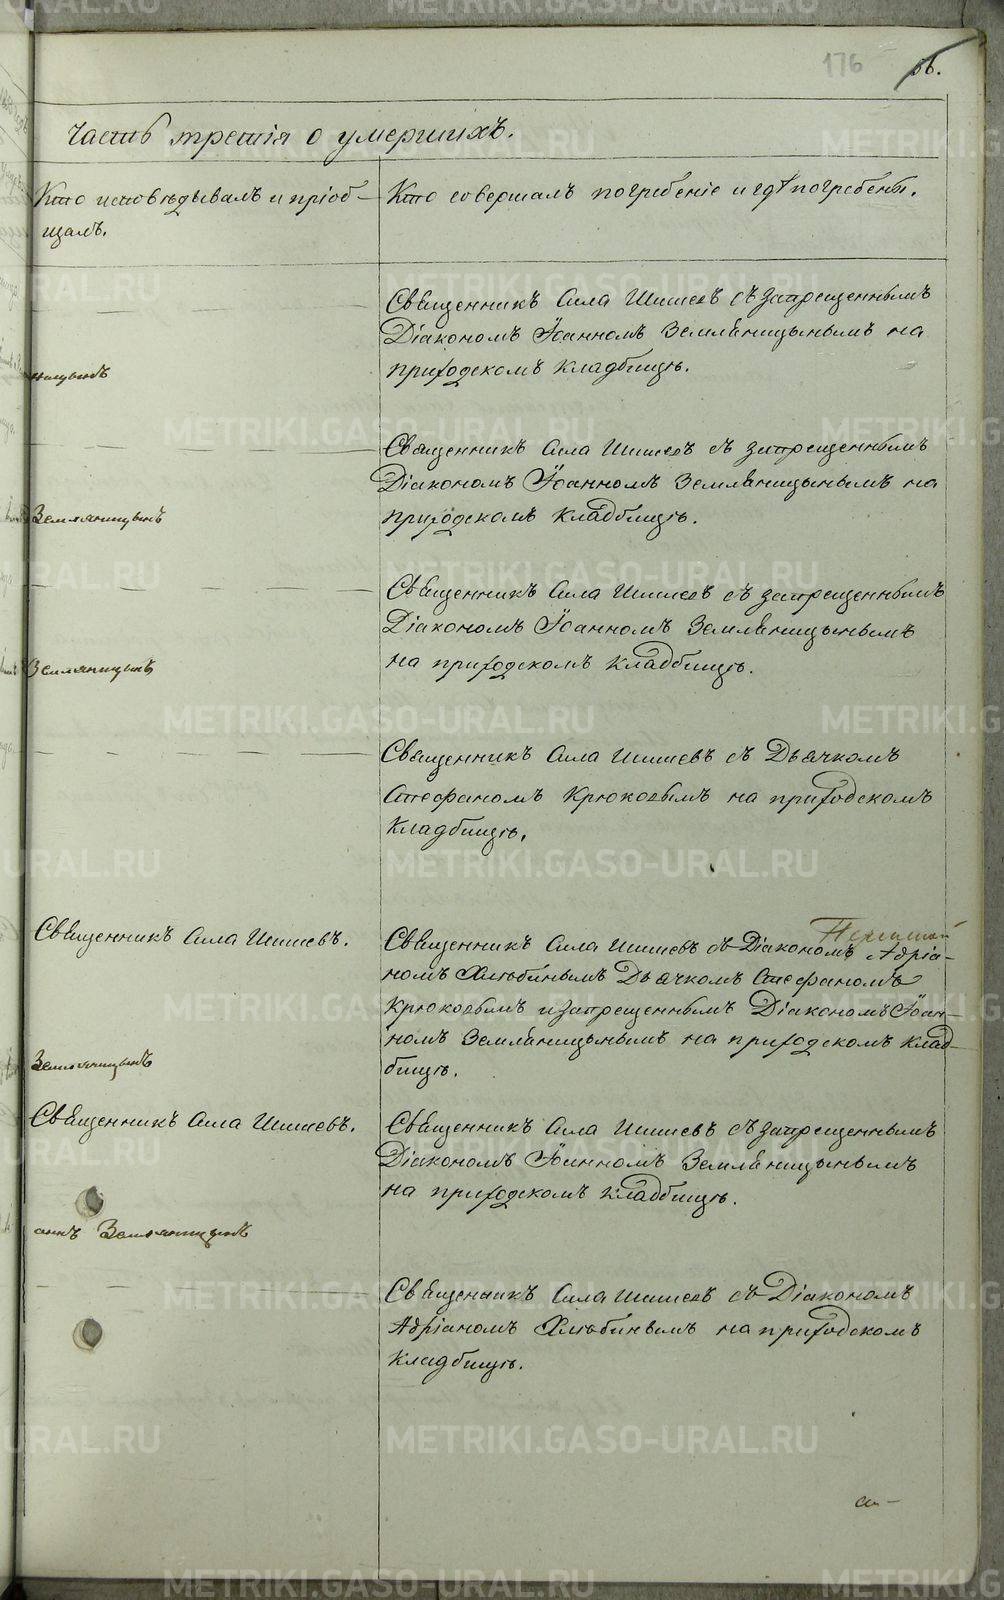 176 56.
Часть третія о умершихъ.
Кто исповѣдывалъ и пріоб-
щалъ.
Кто совершалъ погребеніе и гдѣ погребены.
Священникъ Сила Шишевъ съ запрещеннымъ
Діакономъ Іоанномъ Земляницынымъ на
приходскомъ кладбищѣ.
ницынъ
Священникъ Сила Шишевъ съ запрещеннымъ
Діакономъ Іоанномъ Земляницынымъ на
приходскомъ кладбищѣ.
Земляницынъ
Священникъ Сила Шишевъ съ запрещеннымъ
Діакономъ Іоанномъ Земляницынымъ
на приходскомъ кладбищѣ.
Земляницынъ
Священникъ Сила Шишевъ съ Дьячкомъ
Стефаномъ Крюковымъ на приходскомъ
кладбищѣ.
Священникъ Сила Шишевъ.
Священникъ Сила Шишевъ съ Діакономъ Адріа-
номъ Хлюбинымъ Дьячкомъ Стефаномъ
Крюковымъ и запрещеннымъ Діакономъ Іоан-
номъ Земляницынымъ на приходскомъ клад-
бищѣ.
Земляницынъ
Священникъ Сила Шишевъ.
Священникъ Сила Шишевъ съ запрещеннымъ
Діакономъ Іоанномъ Земляницынымъ
на приходскомъ кладбищѣ.
аннъ Земляницынъ
Священникъ Сила Шишевъ съ Діакономъ
Адріаномъ Хлюбинымъ на приходскомъ
кладбищѣ.
METRIKI.GASO-URAL.RU